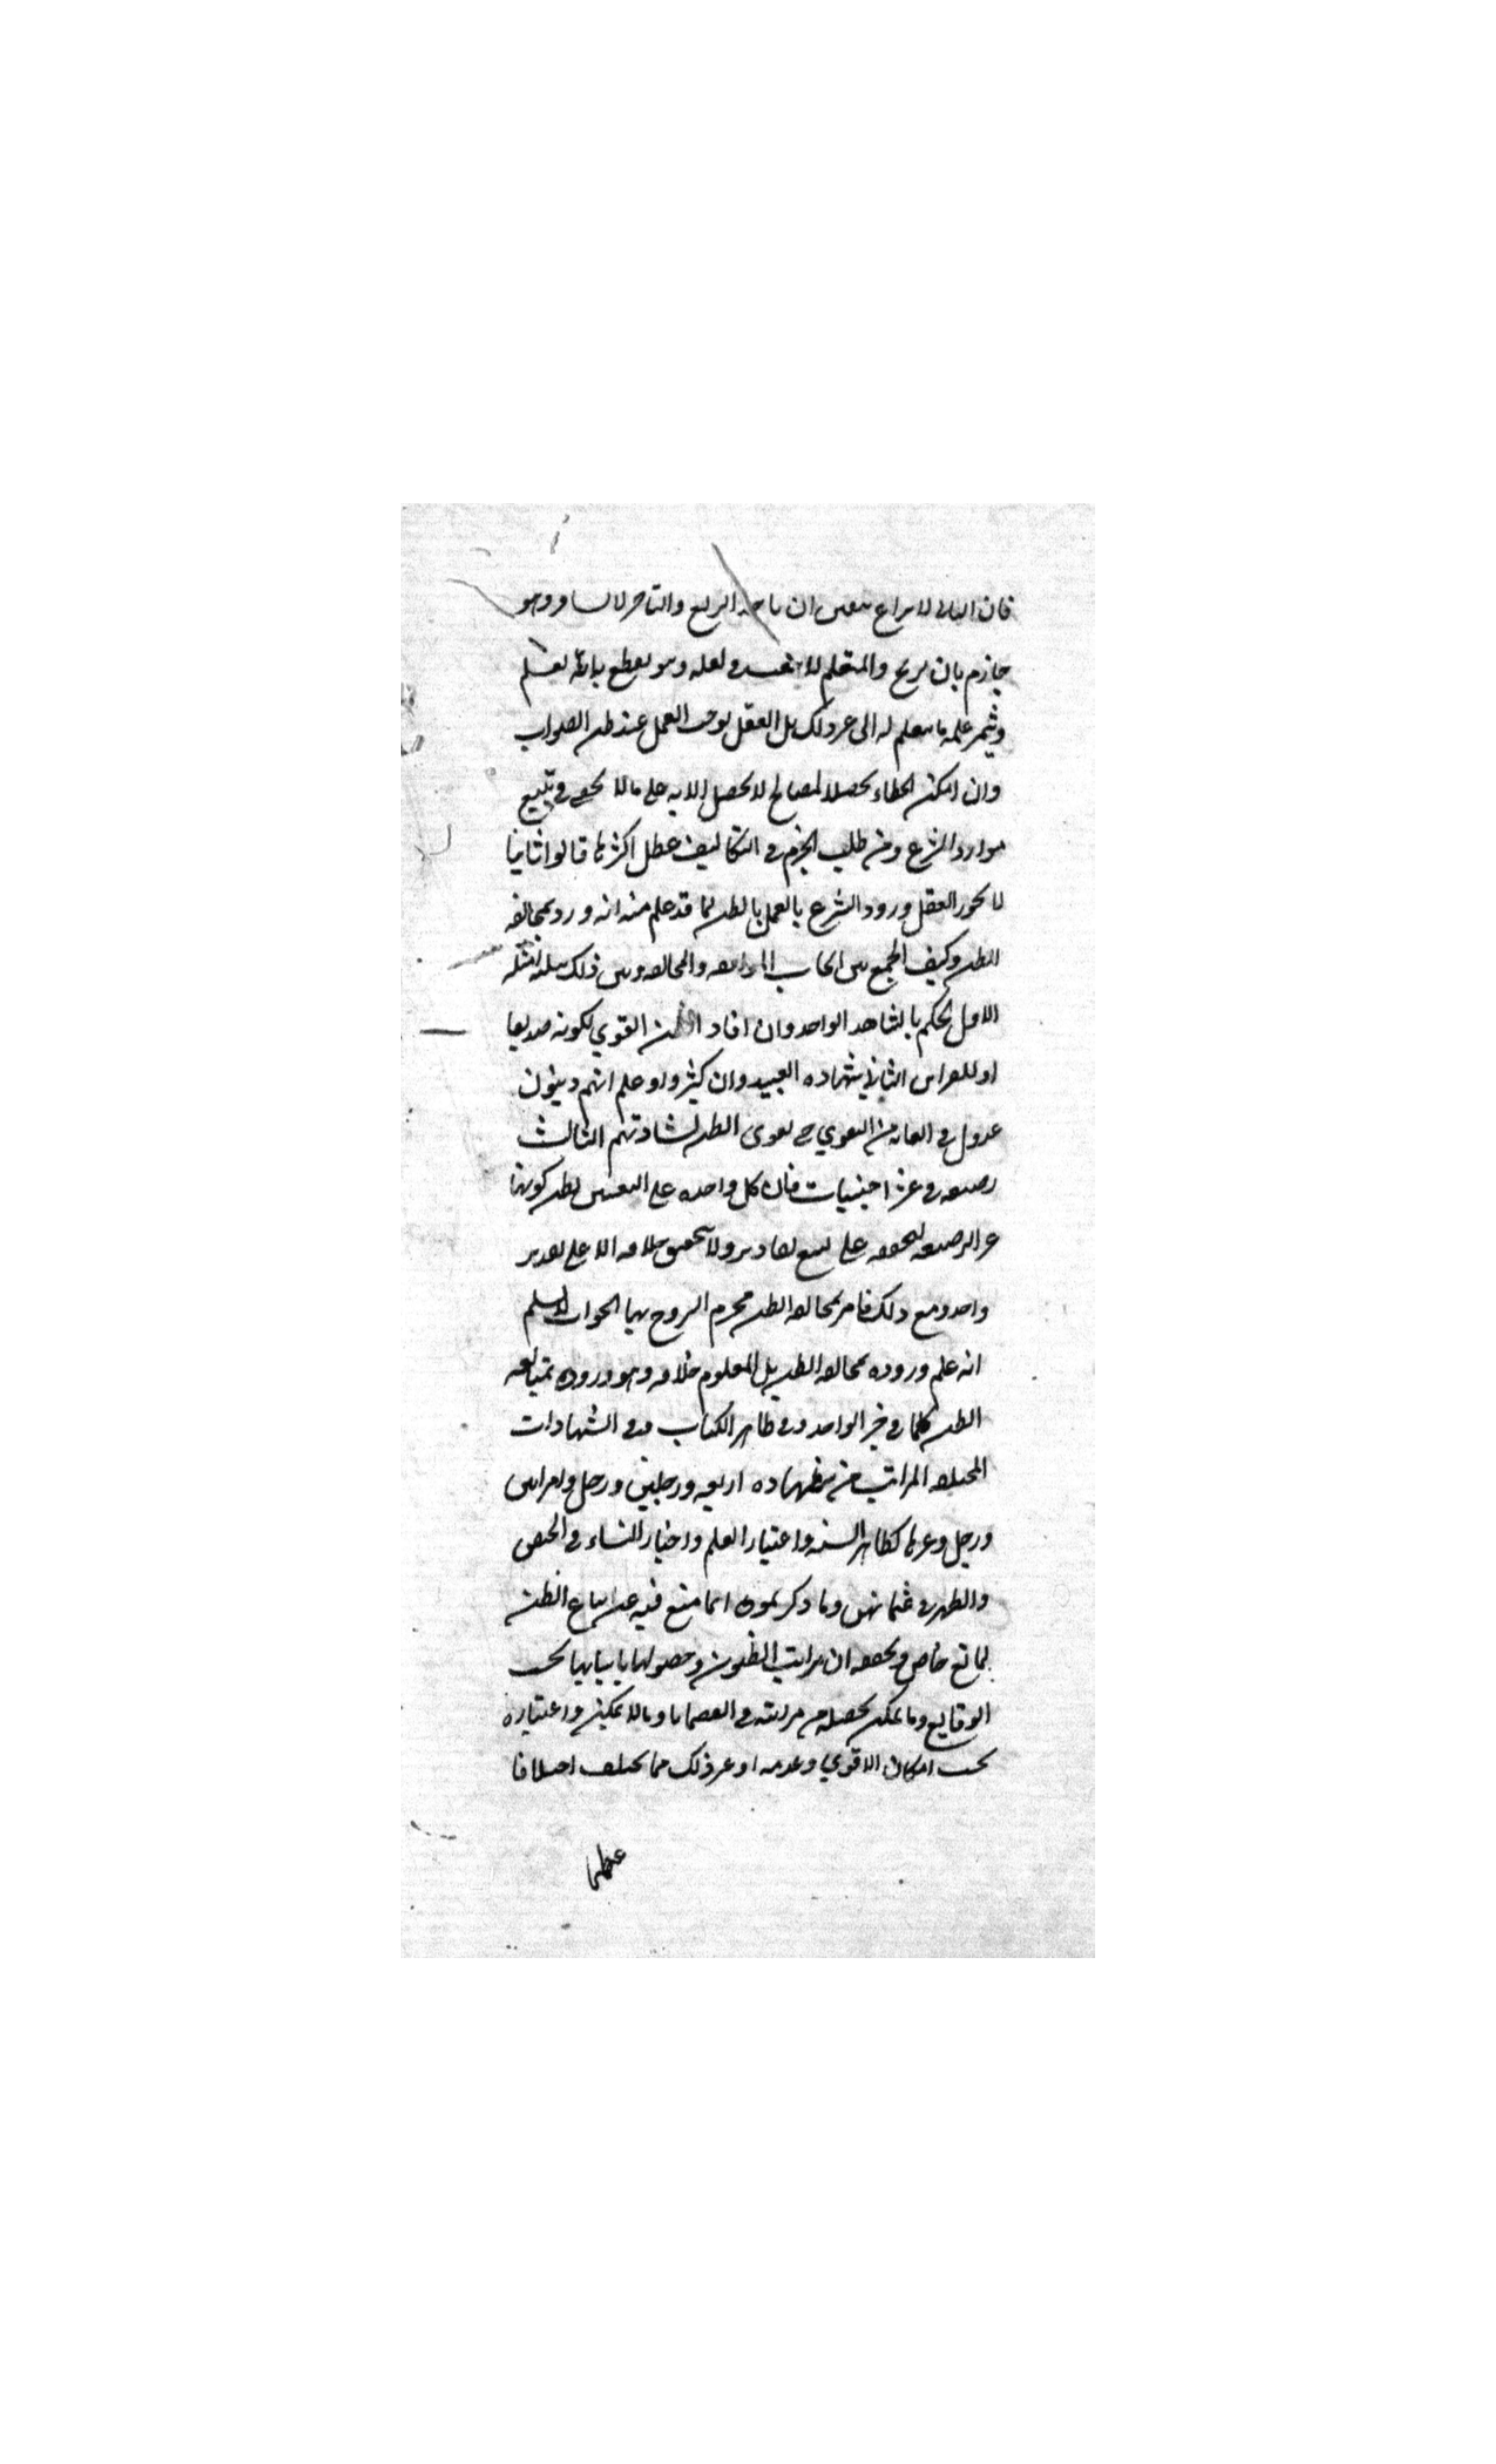 فان البادر لا يزرع بتيقن ان ياخذ الريع والتاجر لا يسافر وهو
جازم بان يربح والمتعلم لا يتعب في تعلمه وهو يقطع بانه يعلم
ويثمر علمه ما يتعلم له الى غير ذلك بل العقل يوجب العمل عند ظن الصواب
وان امكن الخطاء تحصيلا لمصالح لا تحصل الا به على ما لا يخفى في تتبع
موارد الشرع ومن طلب الجزم في التكاليف عطل اكثرها قالوا ثانيا
لا يجوز العقل ورود الشرع بالعمل بالظن لما قد علم منه انه ورد بمخالفة
الظن وكيف الجمع بين ايجاب الموافقه والمخالفه وبين ذلك بثلثة امثلة
الاول الحكم بالشاهد الواحد وان افاد الظن القوي لكونه صديقا
او للقراين الثاني شهاده العبيد وان كثروا وعلم انهم دينون
عدول في الغاية من التقوي حتى يقوى الظن بشهادتهم الثالث
رضيعة في عشر اجنبيات فان كل واحده على التعيين يظن كونها
غير الرضيعه لتحققه على تسع تقادير ولا يتحقق خلافه الا على تقدير
واحد ومع ذلك فامر بمخالفة الظن محرم التزوج بها الجواب لا نسلم
انه علم وروده بمخالفة الظن بل المعلوم خلافه وهو وروده بمتابعة
الظن كما في خبر الواحد وفي ظاهر الكتاب وفي الشهادات
المختلفه المراتب من شهاده اربعه ورجلين ورجل وامراتين
ورجل وغيرها كظاهر السنة واعتبار العلم واخبار النساء في الحيض
والطهر في غشيانهن وما ذكرتموه انما منع فيه عن اتباع الظن
لمانع خاص وتحققه ان مراتب الظنون وحصولها باسبابها بحسب
الوقايع وما يمكن تحصيله من مراتبه في القضايا وما لا يمكن واعتباره
بحسب امكان الاقوي وعدمه او غير ذلك مما يختلف اختلافا
عظيما